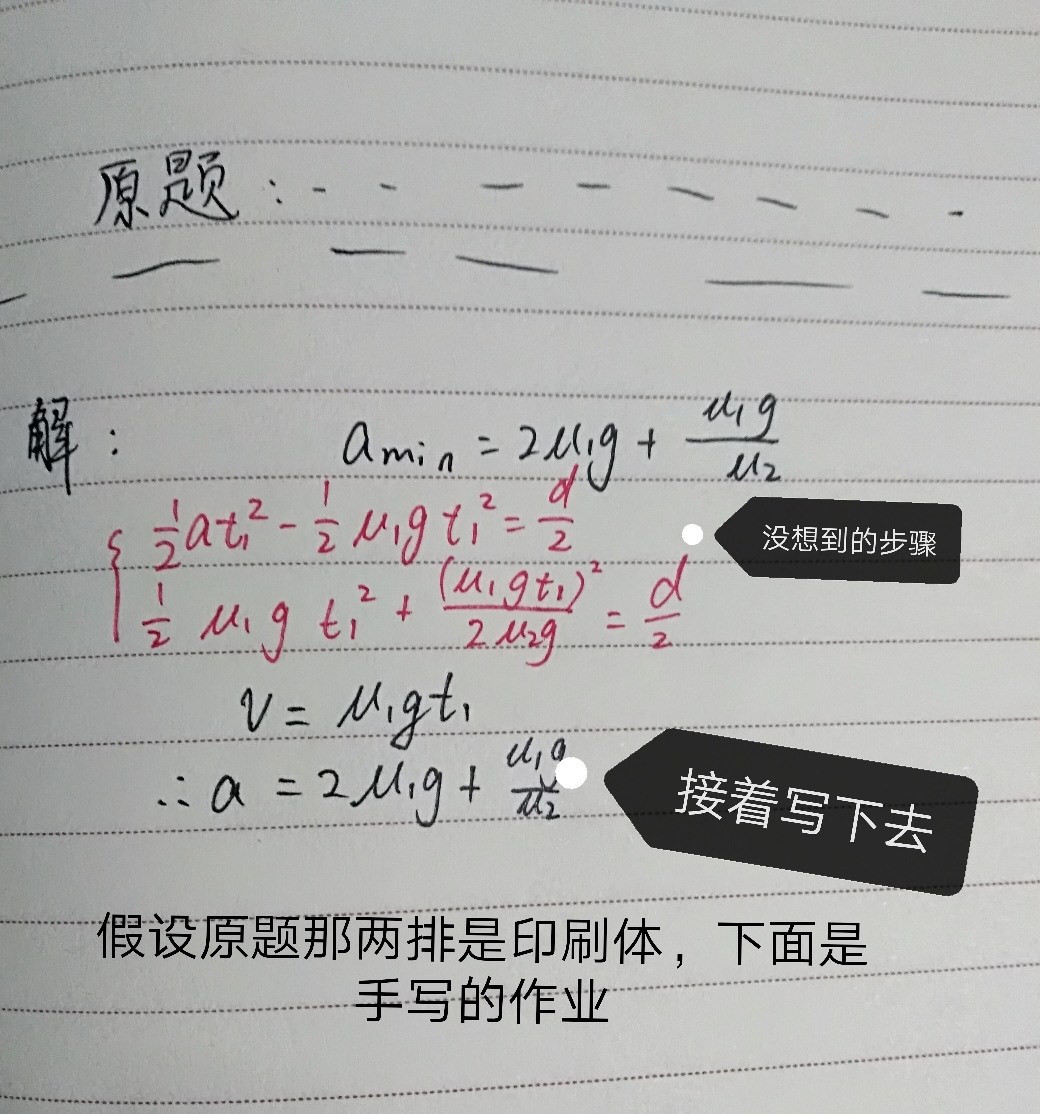 原题：- - — — — — — -
— — — — — —
解： a_min = 2μ₁g + μ₁g/μ₂
{ 1/2 at₁² - 1/2 μ₁g t₁² = d/2
没想到的步骤
1/2 μ₁g t₁² + (μ₁gt₁)²/2μ₂g = d/2
v = μ₁gt₁
∴ a = 2μ₁g + μ₁g/μ₂
接着写下去
假设原题那两排是印刷体，下面是
手写的作业